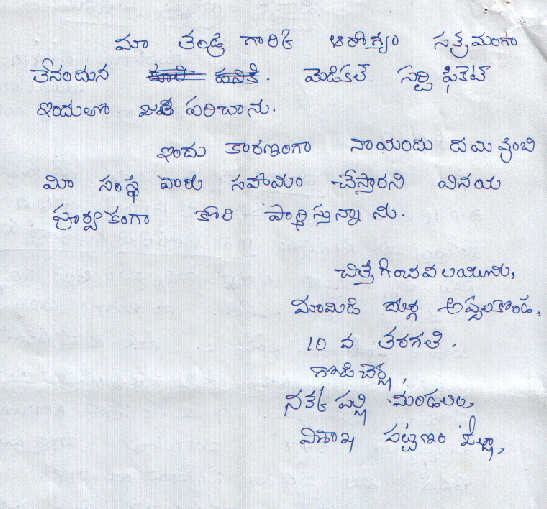 మా తండ్రి గారికి ఆరోగ్యం సక్రమంగా
లేనందున మెడికల్ సర్టిఫికెట్
ఇందులో జత పరిచాను.
ఇందు కారణంగా నాయందు దయ వుంచి
మీ సంస్థ వారు సహాయం చేస్తారని వినయ
పూర్వకంగా కోరి ప్రార్థిస్తున్నాను.
చిత్తగించవలయును,
మామిడి దుర్గ అప్పలకొండ,
10 వ తరగతి.
గొడిచర్ల,
నక్కపల్లి మండలం,
విశాఖ పట్టణం జిల్లా,